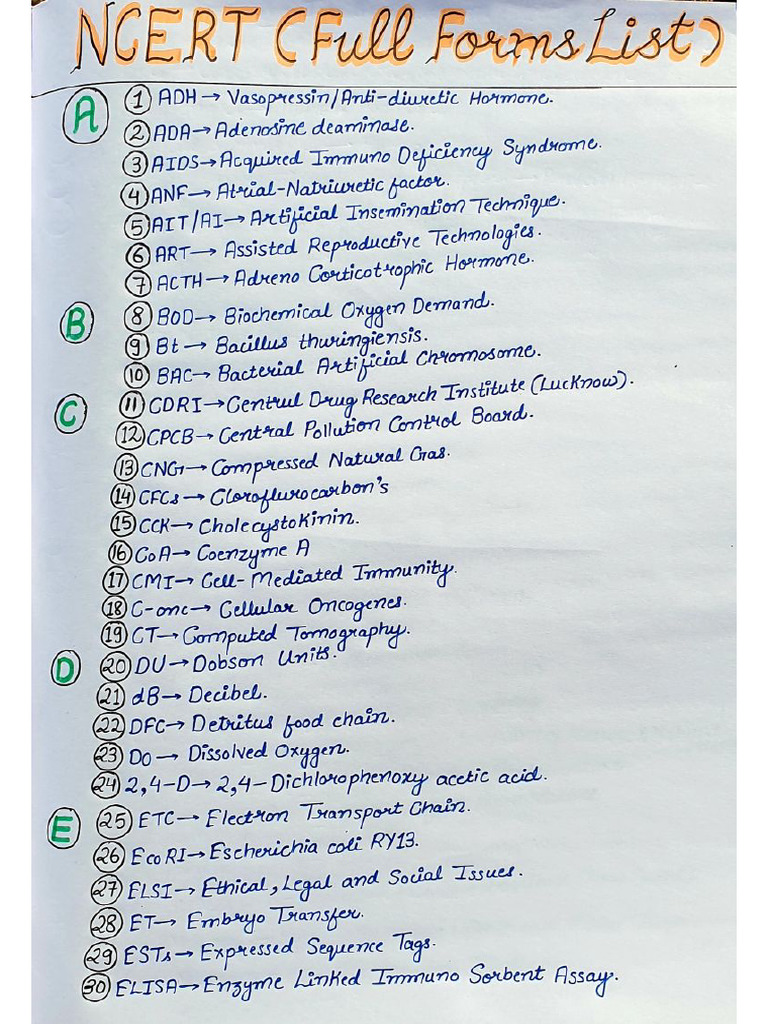 NCERT (Full Forms List)
A
1 ADH → Vasopressin/Anti-diuretic Hormone.
2 ADA → Adenosine deaminase.
3 AIDS → Acquired Immuno Deficiency Syndrome.
4 ANF → Atrial-Natriuretic factor.
5 AIT/AI → Artificial Insemination Technique.
6 ART → Assisted Reproductive Technologies.
7 ACTH → Adreno Corticotrophic Hormone.
B
8 BOD → Biochemical Oxygen Demand.
9 Bt → Bacillus thuringiensis.
10 BAC → Bacterial Artificial Chromosome.
C
11 CDRI → Centrul Drug Research Institute (Lucknow).
12 CPCB → Central Pollution Control Board.
13 CNG → Compressed Natural Gas.
14 CFCs → Clorofluro carbon's
15 CCK → Cholecystokinin.
16 CoA → Coenzyme A
17 CMI → Cell-Mediated Immunity.
18 C-onc → Cellular Oncogenes.
19 CT → Computed Tomography.
D
20 DU → Dobson Units.
21 dB → Decibel.
22 DFC → Detritus food chain.
23 DO → Dissolved Oxygen.
24 2,4-D → 2,4-Dichlorophenoxy acetic acid.
E
25 ETC → Electron Transport Chain.
26 EcoRI → Escherichia coli RY13.
27 ELSI → Ethical, Legal and Social Issues.
28 ET → Embryo Transfer.
29 ESTs → Expressed Sequence Tags.
30 ELISA → Enzyme Linked Immuno Sorbent Assay.